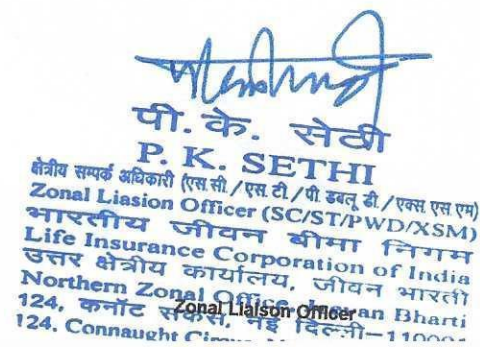 पी. के. सेठी
P. K. SETHI
क्षेत्रीय सम्पर्क अधिकारी (एस.सी./एस.टी./पी.डबलू.डी./एक्स.एस.एम)
Zonal Liasion Officer (SC/ST/PWD/XSM)
भारतीय जीवन बीमा निगम
Life Insurance Corporation of India
उत्तर क्षेत्रीय कार्यालय, जीवन भारती
Northern Zonal Office, Bharti
124, कनॉट सर्कस, नई दिल्ली-11000
Zonal Liaison Officer
124, Connaught